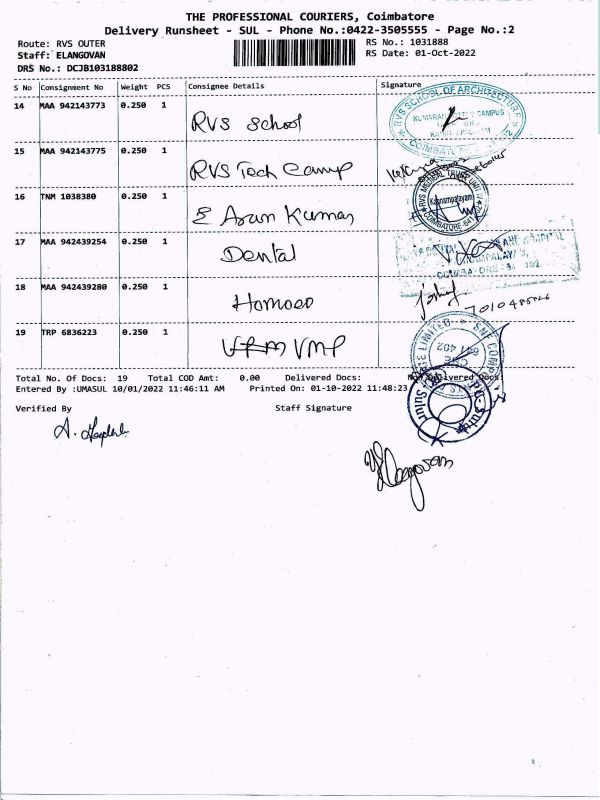 THE PROFESSIONAL COURIERS, Coimbatore
Delivery Runsheet - SUL - Phone No.:0422-3505555 - Page No.:2
Route: RVS OUTER
RS No.: 1031888
Staff: ELANGOVAN
RS Date: 01-Oct-2022
DRS No.: DCJB103188802
S No Consignment No Weight PCS Consignee Details Signature
14 MAA 942143773 0.250 1
RVS School
RVS SCHOOL OF ARCHITECTURE
CAMPUS
COIMBATORE
15 MAA 942143775 0.250 1
RVS Tech Camp
16 TNM 1038380 0.250 1
E Arun Kumar
RVS MEDICAL TRUST
Kannampalayam
COIMBATORE
17 MAA 942439254 0.250 1
Dental
18 MAA 942439280 0.250 1
Homoeo
19 TRP 6836223 0.250 1
VMP
LIMITED
641 402
Total No. Of Docs: 19 Total COD Amt: 0.00 Delivered Docs: Not Delivered Docs:
Entered By :UMASUL 10/01/2022 11:46:11 AM Printed On: 01-10-2022 11:48:23
Verified By Staff Signature
Elangovan